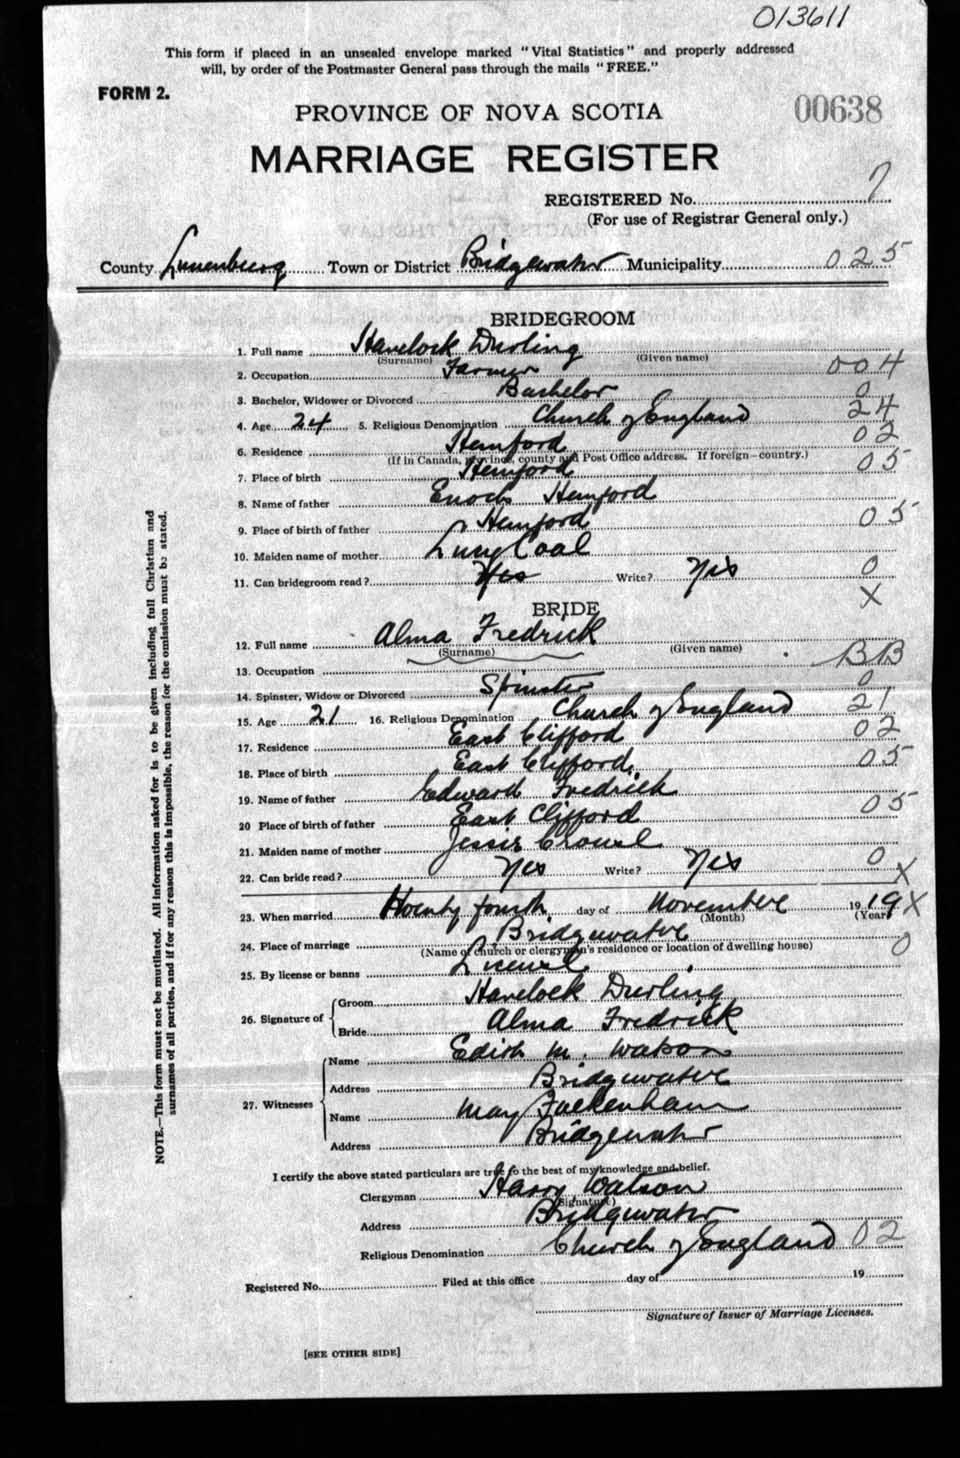 013611
This form if placed in an unsealed envelope marked "Vital Statistics" and properly addressed
will, by order of the Postmaster General pass through the mails "FREE."
FORM 2.
PROVINCE OF NOVA SCOTIA 00638
MARRIAGE REGISTER
REGISTERED No. 7
(For use of Registrar General only.)
County Lunenburg Town or District Bridgewater Municipality 025
BRIDEGROOM
1. Full name Havelock Durling
(Surname) (Given name)
2. Occupation Farmer 004
3. Bachelor, Widower or Divorced Bachelor 0
4. Age 24 5. Religious Denomination Church of England 24
6. Residence Hemford 02
(If in Canada, province, county and Post Office address. If foreign—country.)
7. Place of birth Hemford 05
8. Name of father Enoch Hemford
9. Place of birth of father Hemford 05
10. Maiden name of mother Lucy Coal
11. Can bridegroom read? Yes Write? Yes 0
X
BRIDE
12. Full name Alma Fredrick
(Surname) (Given name)
13. Occupation BB
14. Spinster, Widow or Divorced Spinster 0
15. Age 21 16. Religious Denomination Church of England 21
17. Residence East Clifford 02
18. Place of birth East Clifford. 05
19. Name of father Edward Fredrick
20 Place of birth of father East Clifford 05
21. Maiden name of mother Jessie
22. Can bride read? Yes Write? Yes 0
X
23. When married Twenty fourth day of November 1919 X
(Month) (Year)
24. Place of marriage Bridgewater
(Name of church or clergyman's residence or location of dwelling house) 0
25. By license or banns License
26. Signature of Groom Havelock Durling
Bride Alma Fredrick
27. Witnesses Name Edith M. Watson
Address Bridgewater
Name May Falkenham
Address Bridgewater
I certify the above stated particulars are true to the best of my knowledge and belief.
Clergyman Harry Watson
(Signature)
Address Bridgewater
Religious Denomination Church of England 02
Registered No. Filed at this office day of 19
Signature of Issuer of Marriage Licenses.
[SEE OTHER SIDE]
NOTE.—This form must not be mutilated. All information asked for is to be given including full Christian and
surnames of all parties, and if for any reason this is impossible, the reason for the omission must be stated.